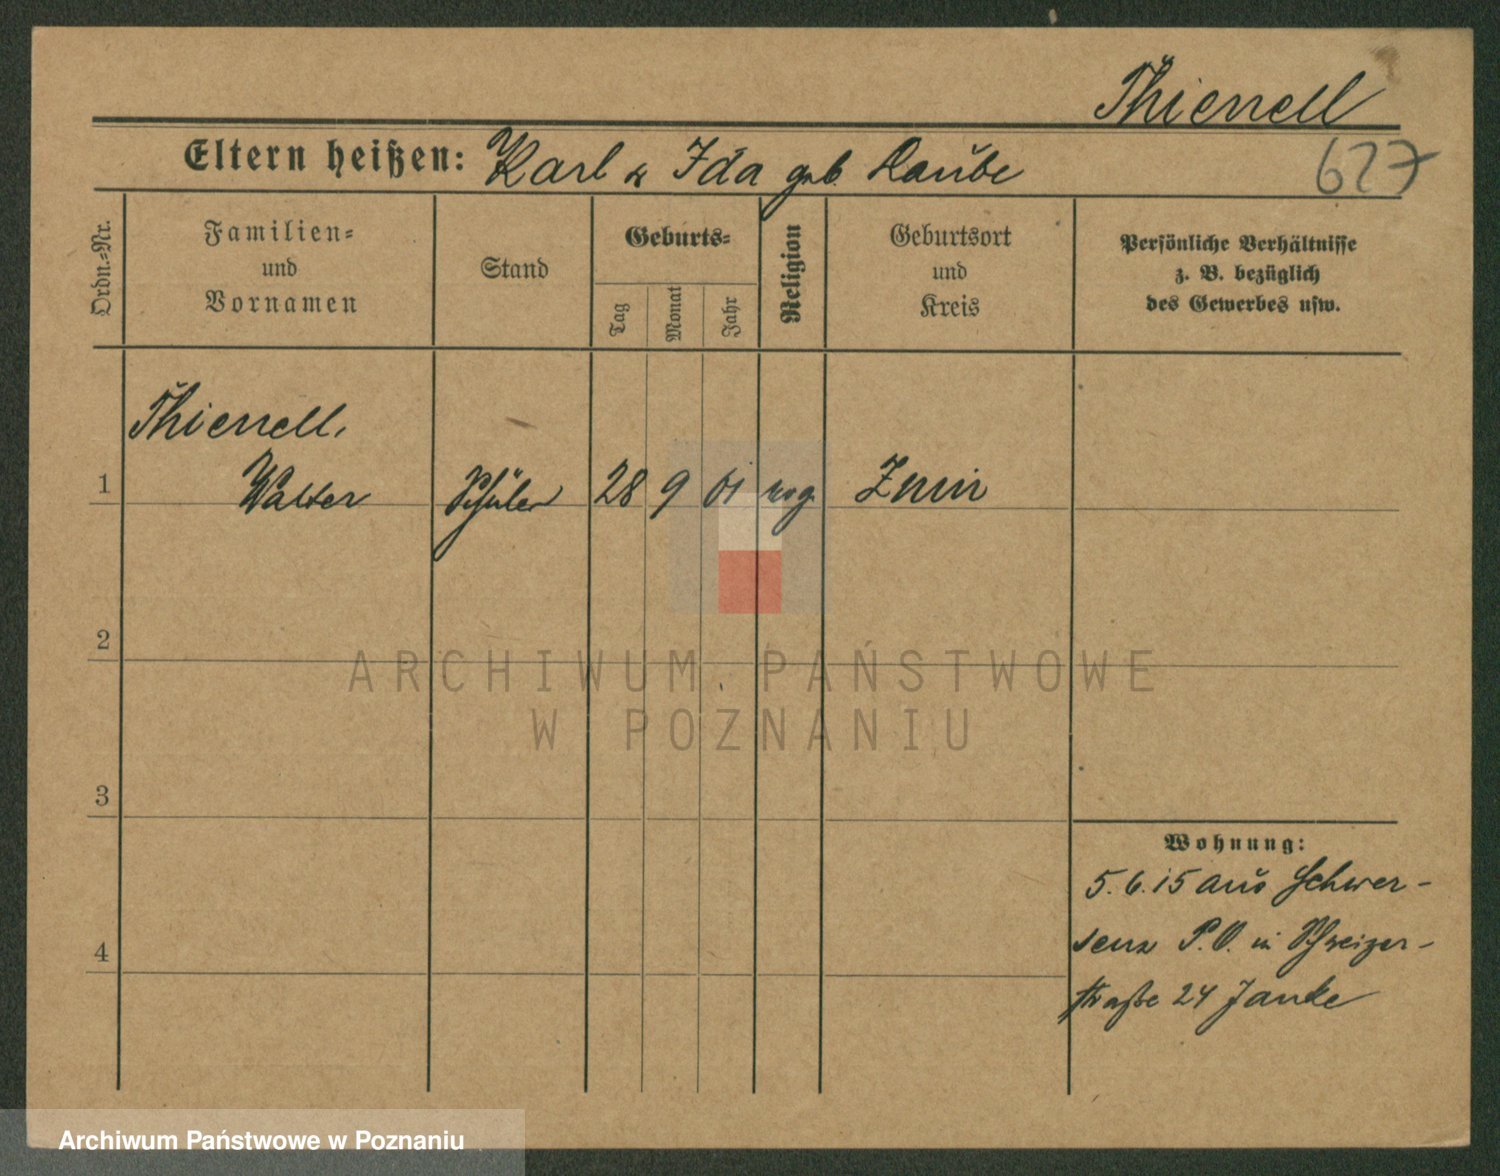 Thienell
Eltern heißen: Karl & Ida geb. Daube
627
Ordn.-Nr.
Familien-
und
Vornamen
Stand
Geburts-
Tag
Monat
Jahr
Religion
Geburtsort
und
Kreis
Persönliche Verhältnisse
z. B. bezüglich
des Gewerbes usw.
Thienell,
1 Walter Schüler 28 9 01 Znin
2
3
4
Wohnung:
5.6.15 aus Schwer-
senz P.O. in Schweizer-
straße 24 Janke
ARCHIWUM PAŃSTWOWE
W POZNANIU
Archiwum Państwowe w Poznaniu